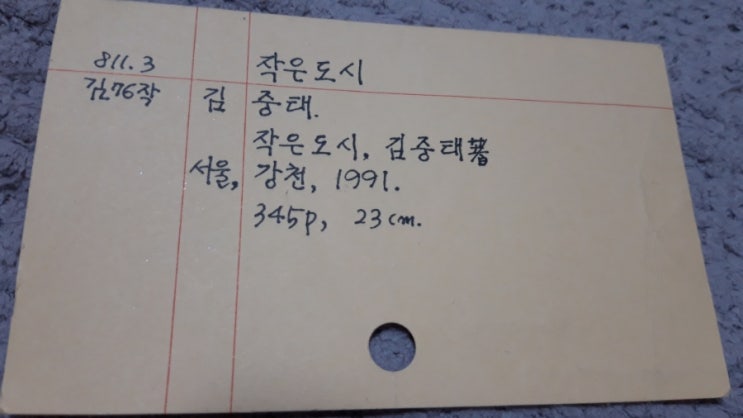 811.3 작은도시
김76작 김 중태.
작은도시, 김중태著
서울, 강천, 1991.
345p, 23cm.